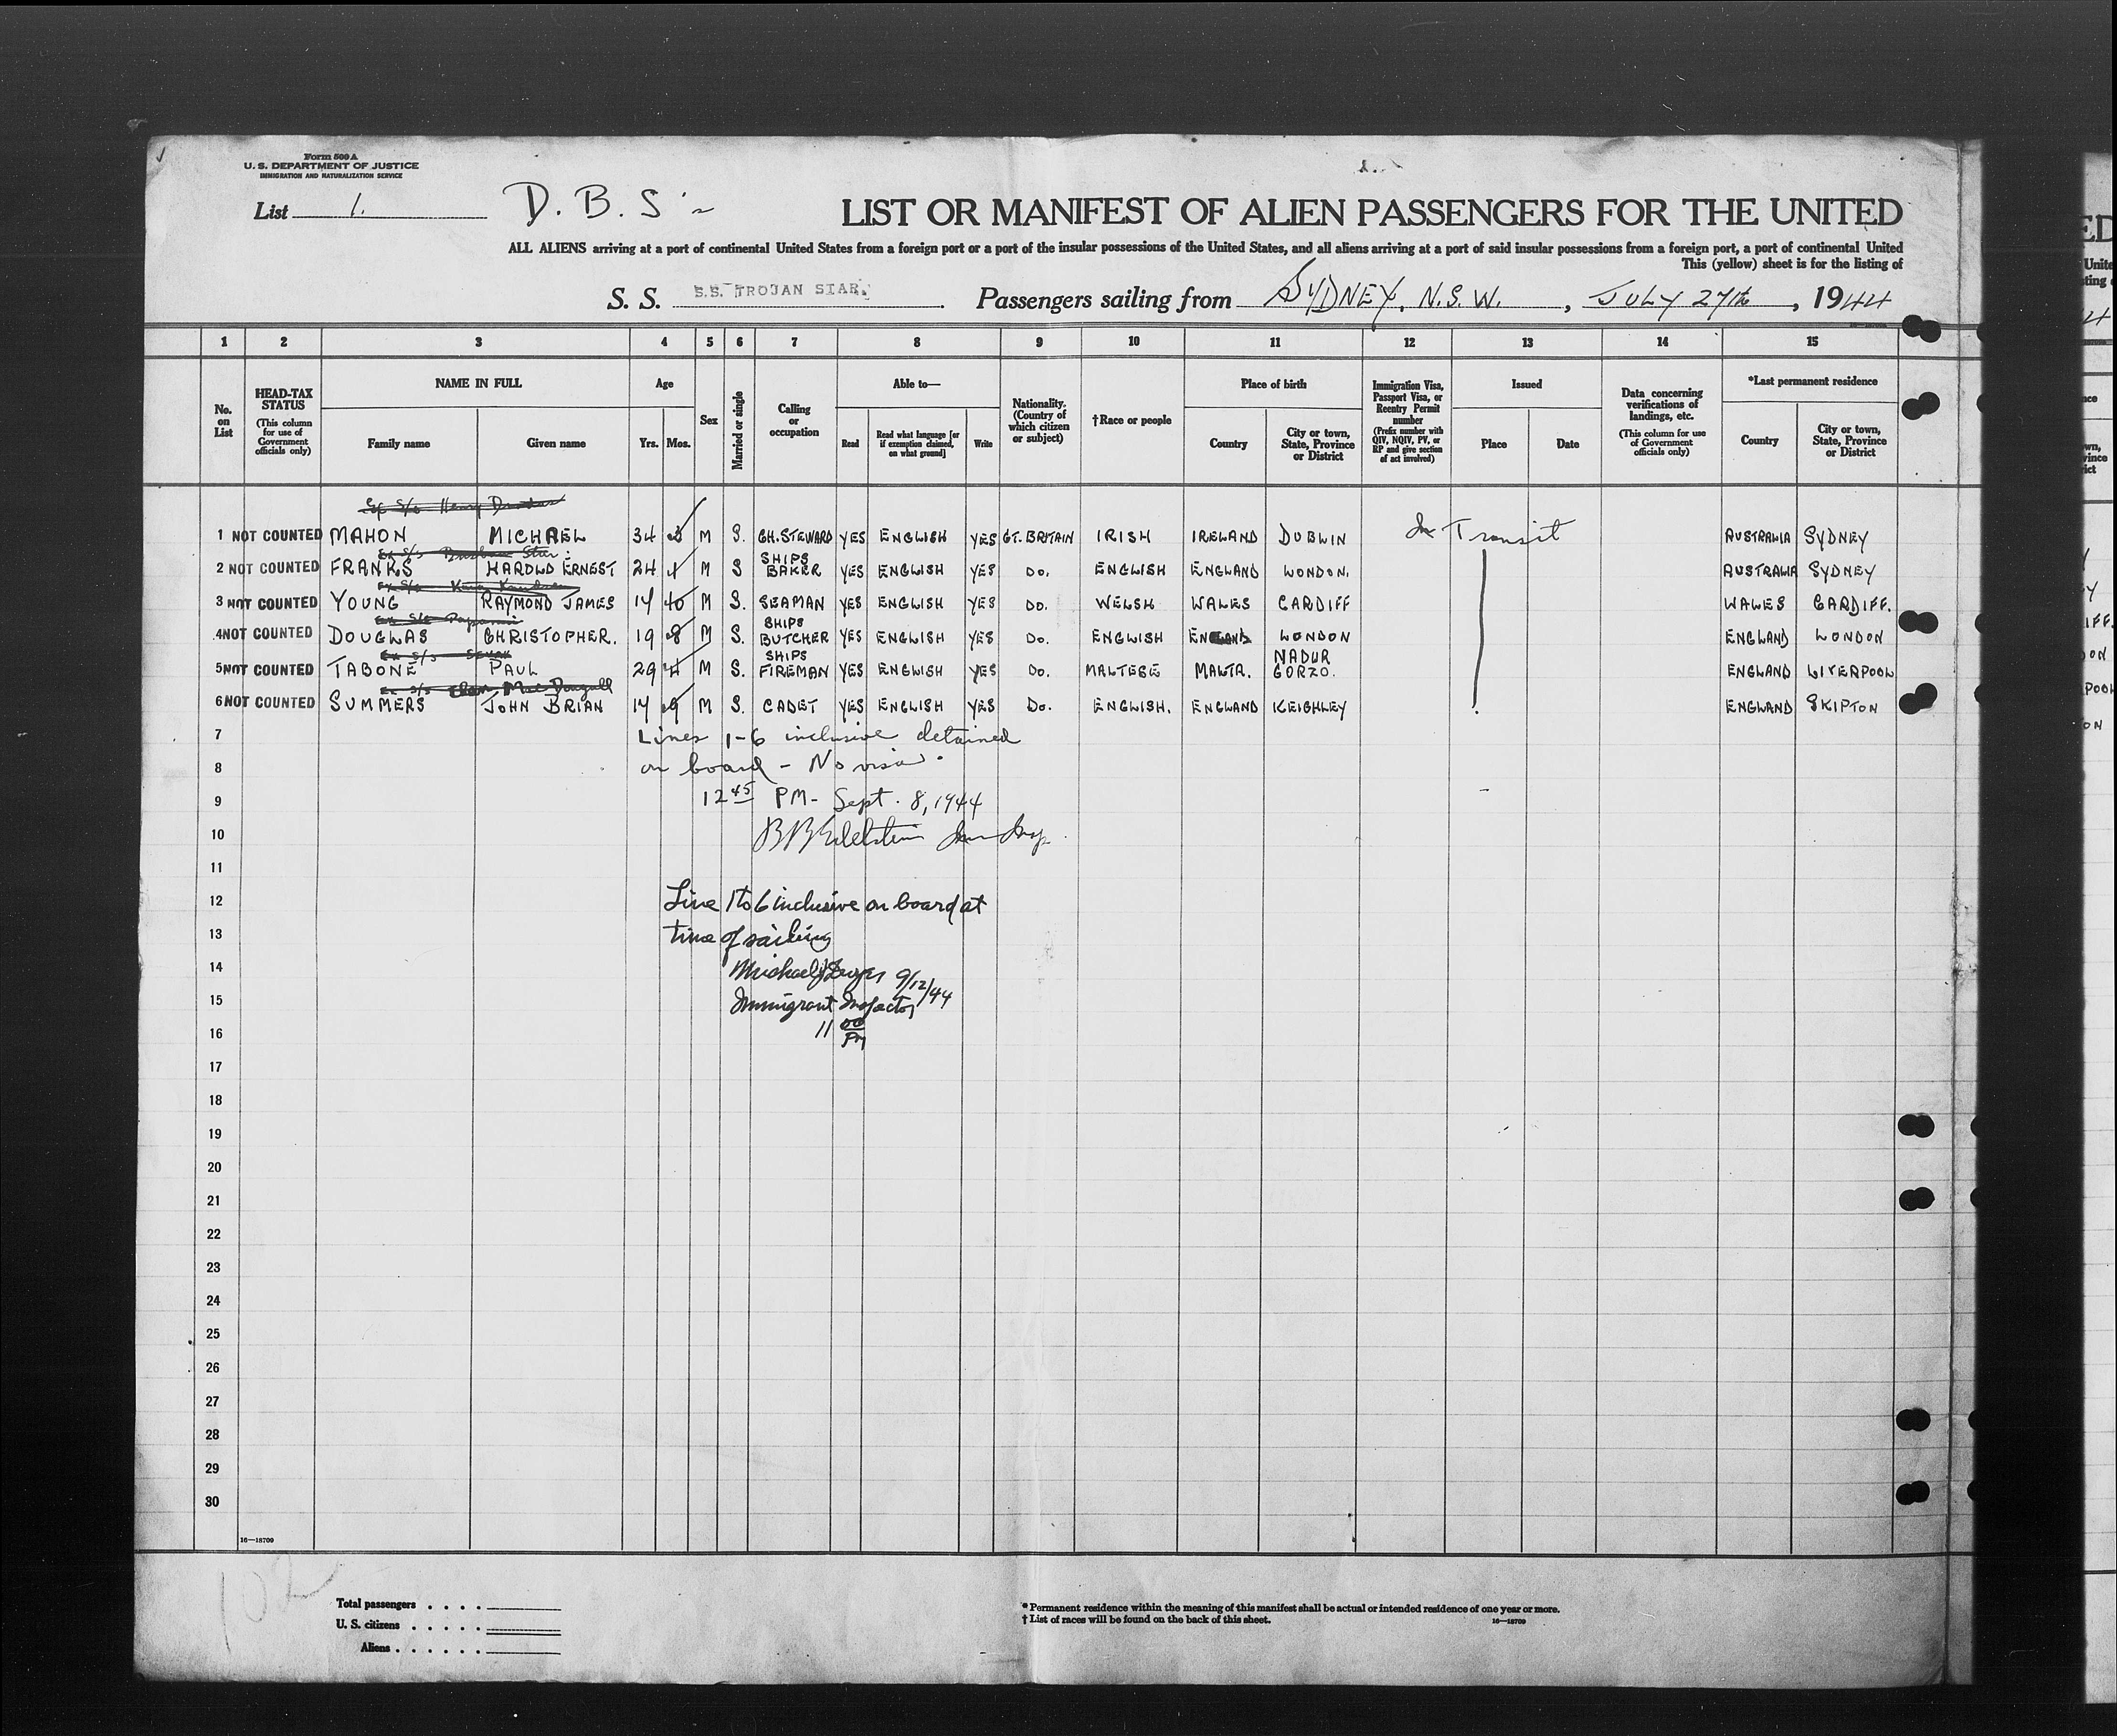 Form 500 A
U. S. DEPARTMENT OF JUSTICE
IMMIGRATION AND NATURALIZATION SERVICE
List 1. D. B. S's
LIST OR MANIFEST OF ALIEN PASSENGERS FOR THE UNITED
ALL ALIENS arriving at a port of continental United States from a foreign port or a port of the insular possessions of the United States, and all aliens arriving at a port of said insular possessions from a foreign port, a port of continental United
This (yellow) sheet is for the listing of
S. S. S.S. TROJAN STAR. Passengers sailing from SYDNEY, N.S.W., JULY 27th, 1944
1 2 3 4 5 6 7 8 9 10 11 12 13 14 15
No. on List
HEAD-TAX STATUS (This column for use of Government officials only)
NAME IN FULL
Family name
Given name
Age
Yrs. Mos.
Sex
Married or single
Calling or occupation
Able to—
Read
Read what language [or if exemption claimed, on what ground]
Write
Nationality. (Country of which citizen or subject)
†Race or people
Place of birth
Country
City or town, State, Province or District
Immigration Visa, Passport Visa, or Reentry Permit number (Prefix number with QIV, NQIV, PV, or RP and give section of act involved)
Issued
Place
Date
Data concerning verifications of landings, etc. (This column for use of Government officials only)
*Last permanent residence
Country
City or town, State, Province or District
Ex S/s Henry
1 NOT COUNTED MAHON MICHAEL 34 M S. CH. STEWARD YES ENGLISH YES GT. BRITAIN IRISH IRELAND DUBLIN In Transit AUSTRALIA SYDNEY
Ex S/s Brisbane Star
2 NOT COUNTED FRANKS HAROLD ERNEST 24 M S SHIPS BAKER YES ENGLISH YES Do. ENGLISH ENGLAND LONDON. AUSTRALIA SYDNEY
Ex S/s
3 NOT COUNTED YOUNG RAYMOND JAMES 17 10 M S. SEAMAN YES ENGLISH YES Do. WELSH WALES CARDIFF WALES CARDIFF.
Ex S/s
4 NOT COUNTED DOUGLAS CHRISTOPHER. 19 8 M S. SHIPS BUTCHER YES ENGLISH YES Do. ENGLISH ENGLAND LONDON ENGLAND LONDON
Ex S/s
5 NOT COUNTED TABONE PAUL 29 M S. SHIPS FIREMAN YES ENGLISH YES Do. MALTESE MALTA. NADUR GORZO. ENGLAND LIVERPOOL
Ex S/s MacDougall
6 NOT COUNTED SUMMERS JOHN BRIAN 17 9 M S. CADET YES ENGLISH YES Do. ENGLISH. ENGLAND KEIGHLEY ENGLAND SKIPTON
7 Lines 1-6 inclusive detained
8 on board - No visa.
9 12 45 PM - Sept. 8, 1944
10 Imm Insp.
11
12 Line 1 to 6 inclusive on board at
13 time of sailing
14 Michael 9/12/44
15 Immigrant Inspector
16 11 00 PM
17
18
19
20
21
22
23
24
25
26
27
28
29
30
16—18709
102
Total passengers
U. S. citizens
Aliens
* Permanent residence within the meaning of this manifest shall be actual or intended residence of one year or more.
† List of races will be found on the back of this sheet.
16—18709